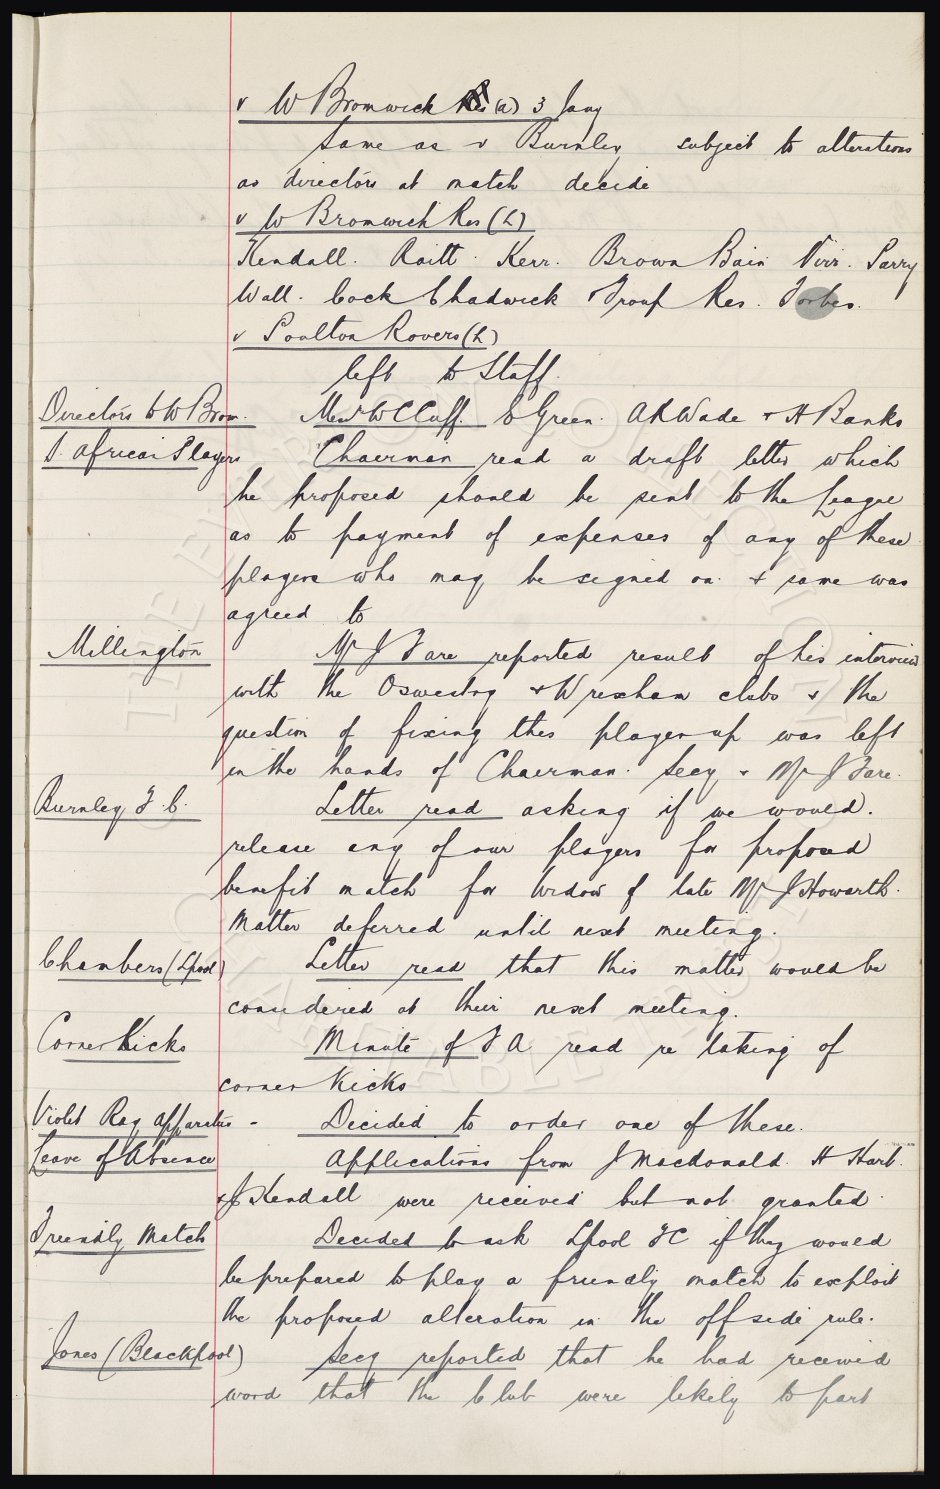 v W Bromwich Res (a) 3 Jany
Same as v Burnley subject to alterations
as directors at match decide
v W Bromwich Res (h)
Kendall. Raitt. Kerr. Brown Bain Virr. Parry
Wall. Cock Chadwick Troup Res. Forbes.
v Poulton Rovers (h)
left to Staff.
Directors to W Brom. Messrs W C Cuff. E Green. A R Wade & H Banks
S. African Players Chairman read a draft letter which
he proposed should be sent to the League
as to payment of expenses of any of these
players who may be signed on. & same was
agreed to
Millington Mr J Fare reported result of his interview
with the Oswestry & Wrexham clubs & the
question of fixing this player up was left
in the hands of Chairman. Secy & Mr J Fare.
Burnley F.C. Letter read asking if we would.
release any of our players for proposed
benefit match for widow of late Mr J Howarth.
Matter deferred until next meeting.
Chambers (Lpool) Letter read that this matter would be
considered at their next meeting.
Corner Kicks Minute of F A read re taking of
corner kicks
Violet Ray apparatus - Decided to order one of these.
Leave of Absence Applications from J Macdonald. H Hart.
& J Kendall were received but not granted
Friendly Match Decided to ask Lpool FC if they would
be prepared to play a friendly match to exploit
the proposed alteration in the off side rule.
Jones (Blackpool) Secy reported that he had received
word that the Club were likely to part
THE EVERTON COLLECTION
CHARITABLE TRUST